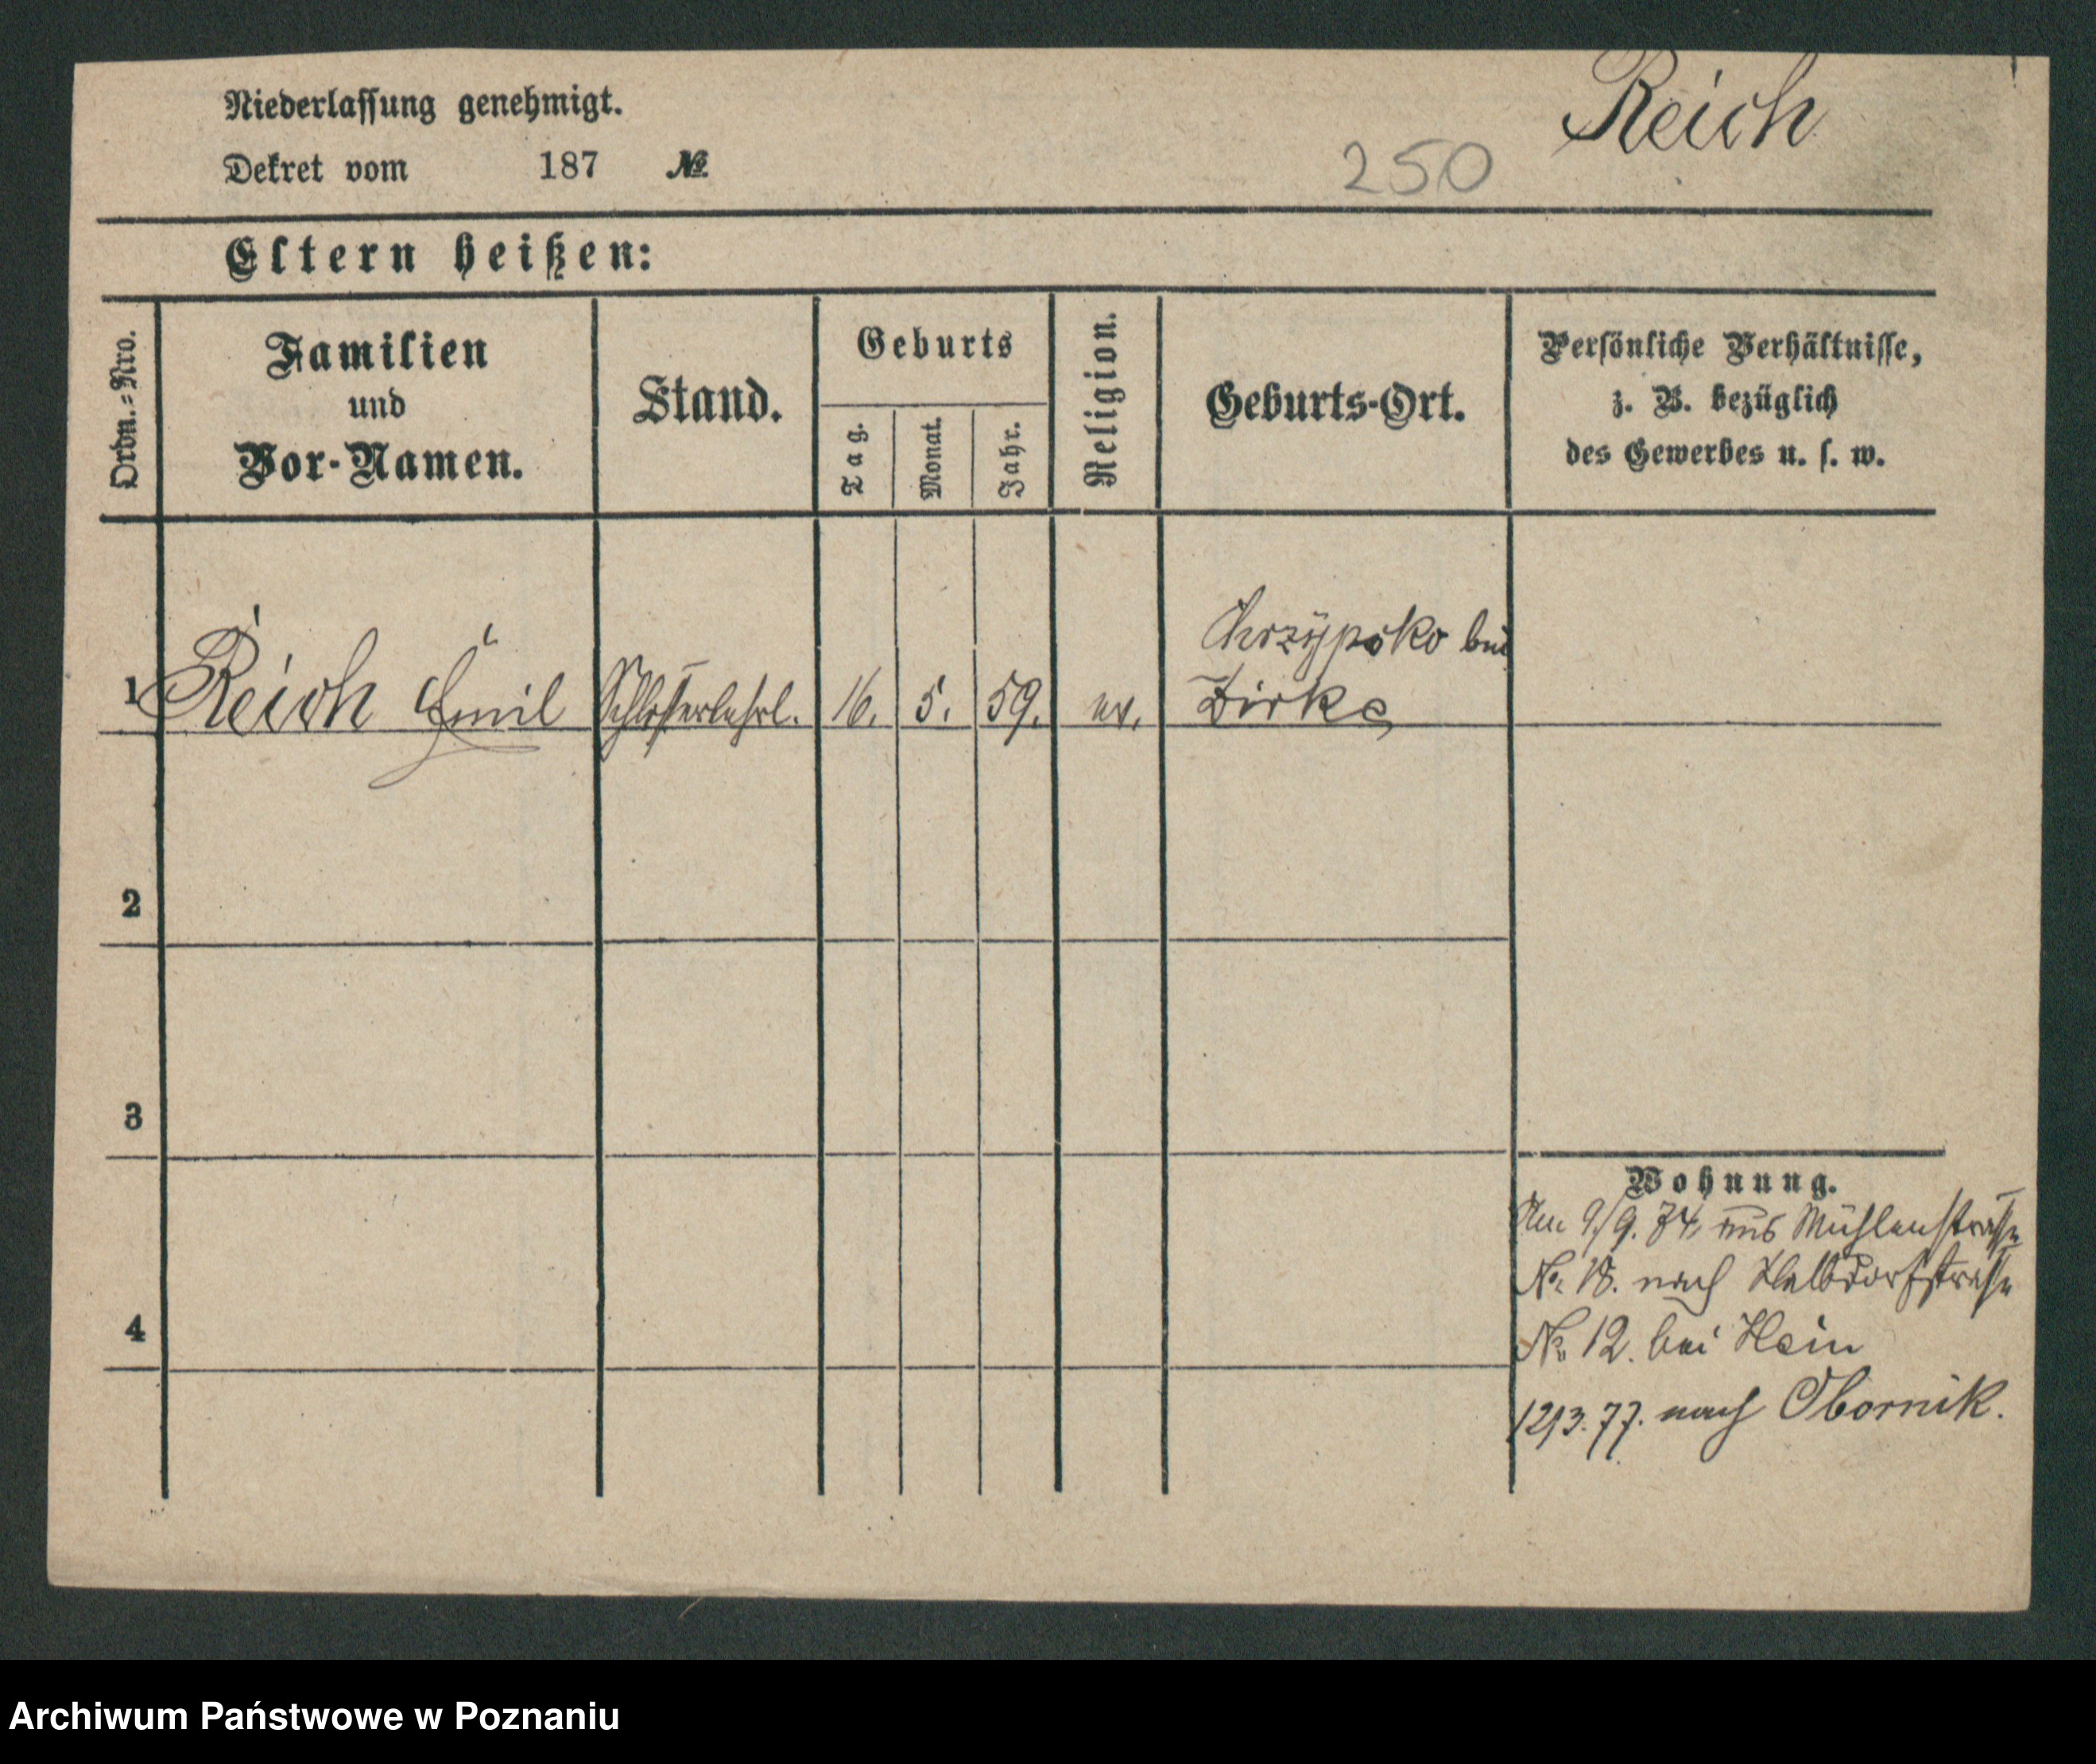 Niederlassung genehmigt.
Reich
Dekret vom 187 №
250
Eltern heißen:
Ordn.=Nro.
Familien
und
Vor-Namen.
Stand.
Geburts
Tag.
Monat.
Jahr.
Religion.
Geburts-Ort.
Persönliche Verhältnisse,
z. B. bezüglich
des Gewerbes u. s. w.
1 Reich Emil Schlosserlehrl. 16. 5. 59. ev. Chrzypsko bei
Zirke
2
3
4
Wohnung.
Am 9/9. 74 aus Mühlenstrasse
No 18. nach Halbdorfstrasse
No 12. bei Hein
12/3. 77. nach Obornik.
Archiwum Państwowe w Poznaniu